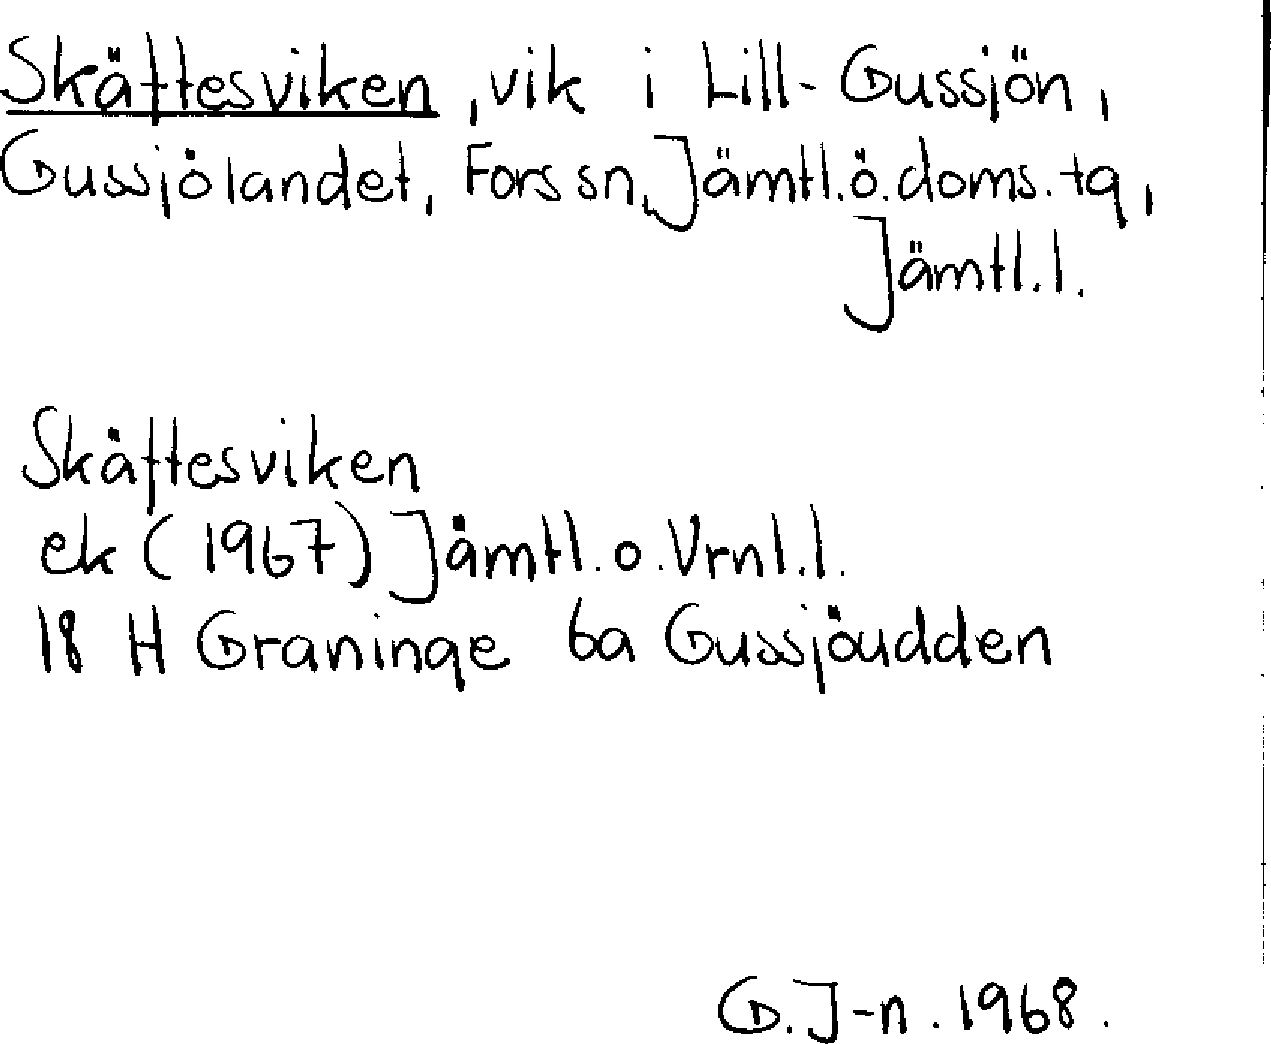 Skäftesviken, vik i Lill-Gussjön,
Gussjölandet, Fors sn, Jämtl.ö.doms.tg,
Jämtl.l.
Skäftesviken
ek (1967) Jämtl.o.Vrnl.l.
18 H Graninge 6a Gussjöudden
G.J-n. 1968.